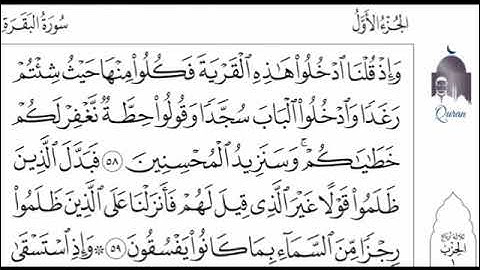 الجُزْءُ الأَوَّلُ
سُورَةُ البَقَرَةِ
وَإِذْ قُلْنَا ٱدْخُلُوا۟ هَٰذِهِ ٱلْقَرْيَةَ فَكُلُوا۟ مِنْهَا حَيْثُ شِئْتُمْ
رَغَدًا وَٱدْخُلُوا۟ ٱلْبَابَ سُجَّدًا وَقُولُوا۟ حِطَّةٌ نَّغْفِرْ لَكُمْ
خَطَٰيَٰكُمْ ۚ وَسَنَزِيدُ ٱلْمُحْسِنِينَ ٥٨ فَبَدَّلَ ٱلَّذِينَ
ظَلَمُوا۟ قَوْلًا غَيْرَ ٱلَّذِى قِيلَ لَهُمْ فَأَنزَلْنَا عَلَى ٱلَّذِينَ ظَلَمُوا۟
رِجْزًا مِّنَ ٱلسَّمَآءِ بِمَا كَانُوا۟ يَفْسُقُونَ ٥٩ ۞ وَإِذِ ٱسْتَسْقَىٰ
Quran
الحِزْب
١